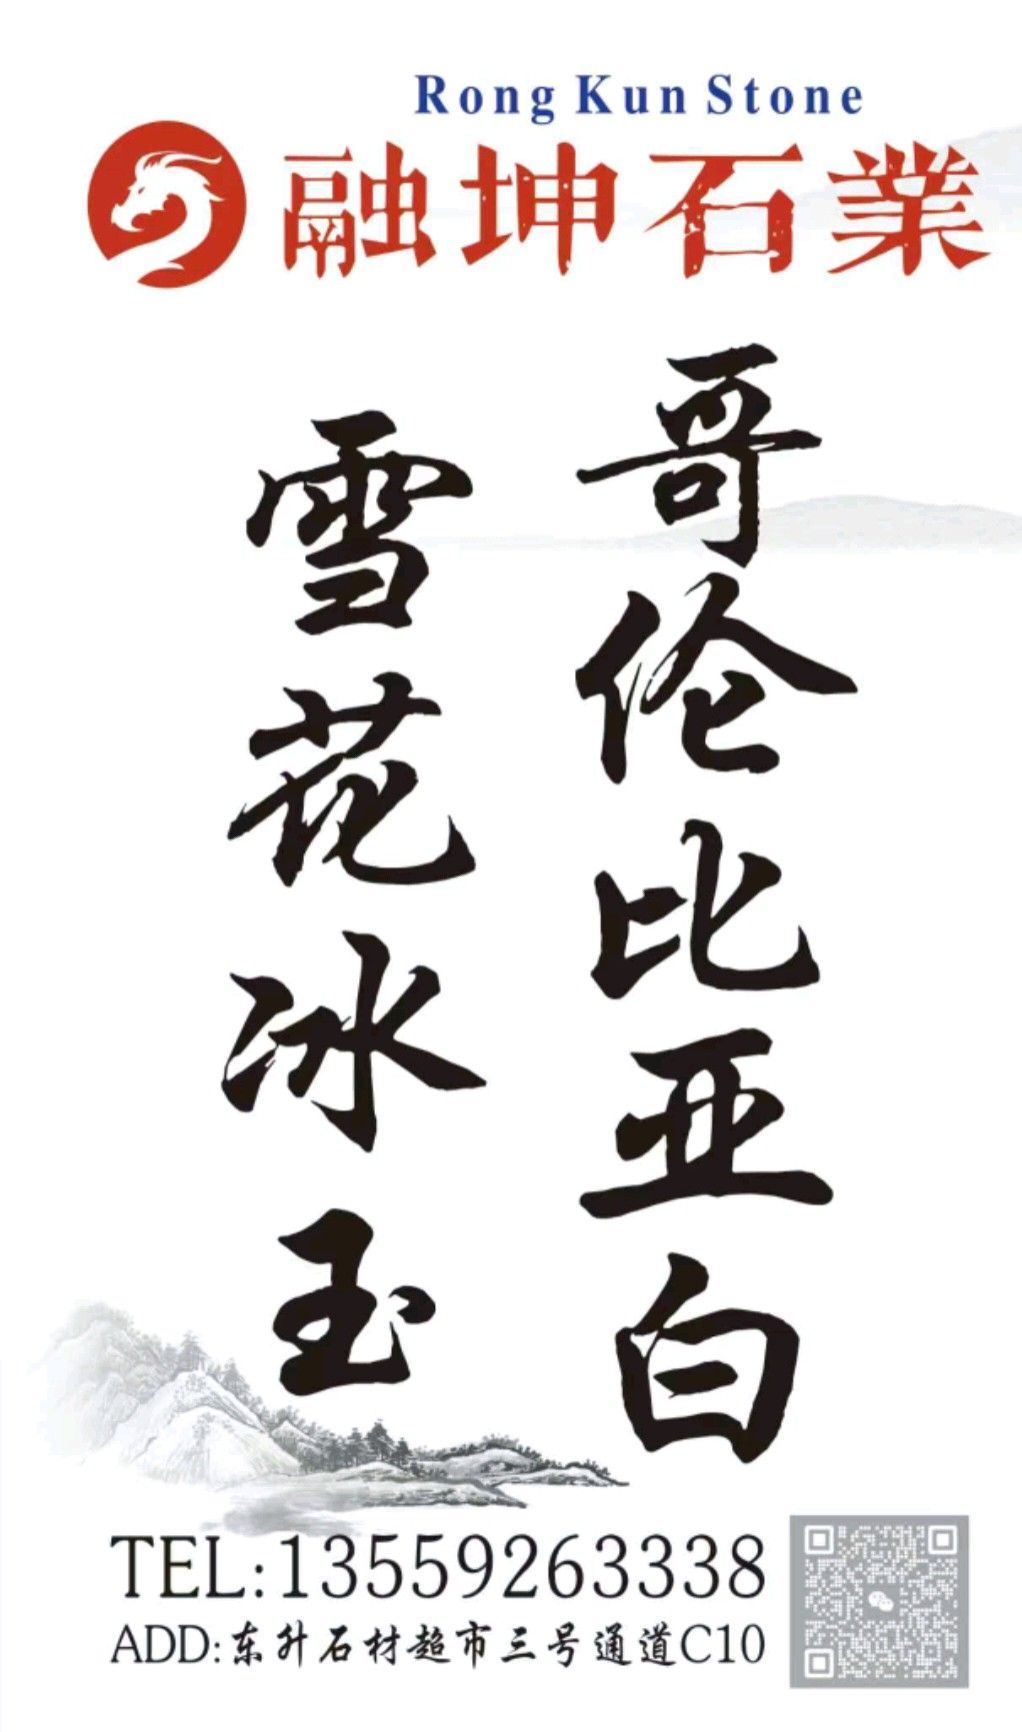 Rong Kun Stone
融坤石業
哥伦比亚白
雪花冰玉
TEL:13559263338
ADD:东升石材超市三号通道C10